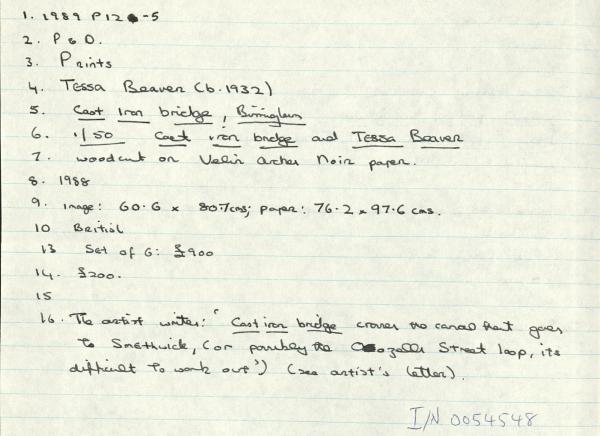 1. 1989 P12 -5
2. P & D.
3. Prints
4. Tessa Beaver (b.1932)
5. Cast Iron bridge, Birmingham
6. 1/50 Cast iron bridge and Tessa Beaver
7. woodcut on Velin Arches Noir paper.
8. 1988
9. image: 60.6 x 80.7cms; paper: 76.2 x 97.6 cms.
10 British
13 Set of 6: £900
14. £200.
15
16. The artist writes: ' Cast iron bridge crosses the canal that goes
to Smethwick, (or possibly the Oozells Street loop, its
difficult to work out') (see artist's letter).
I/N 0054548